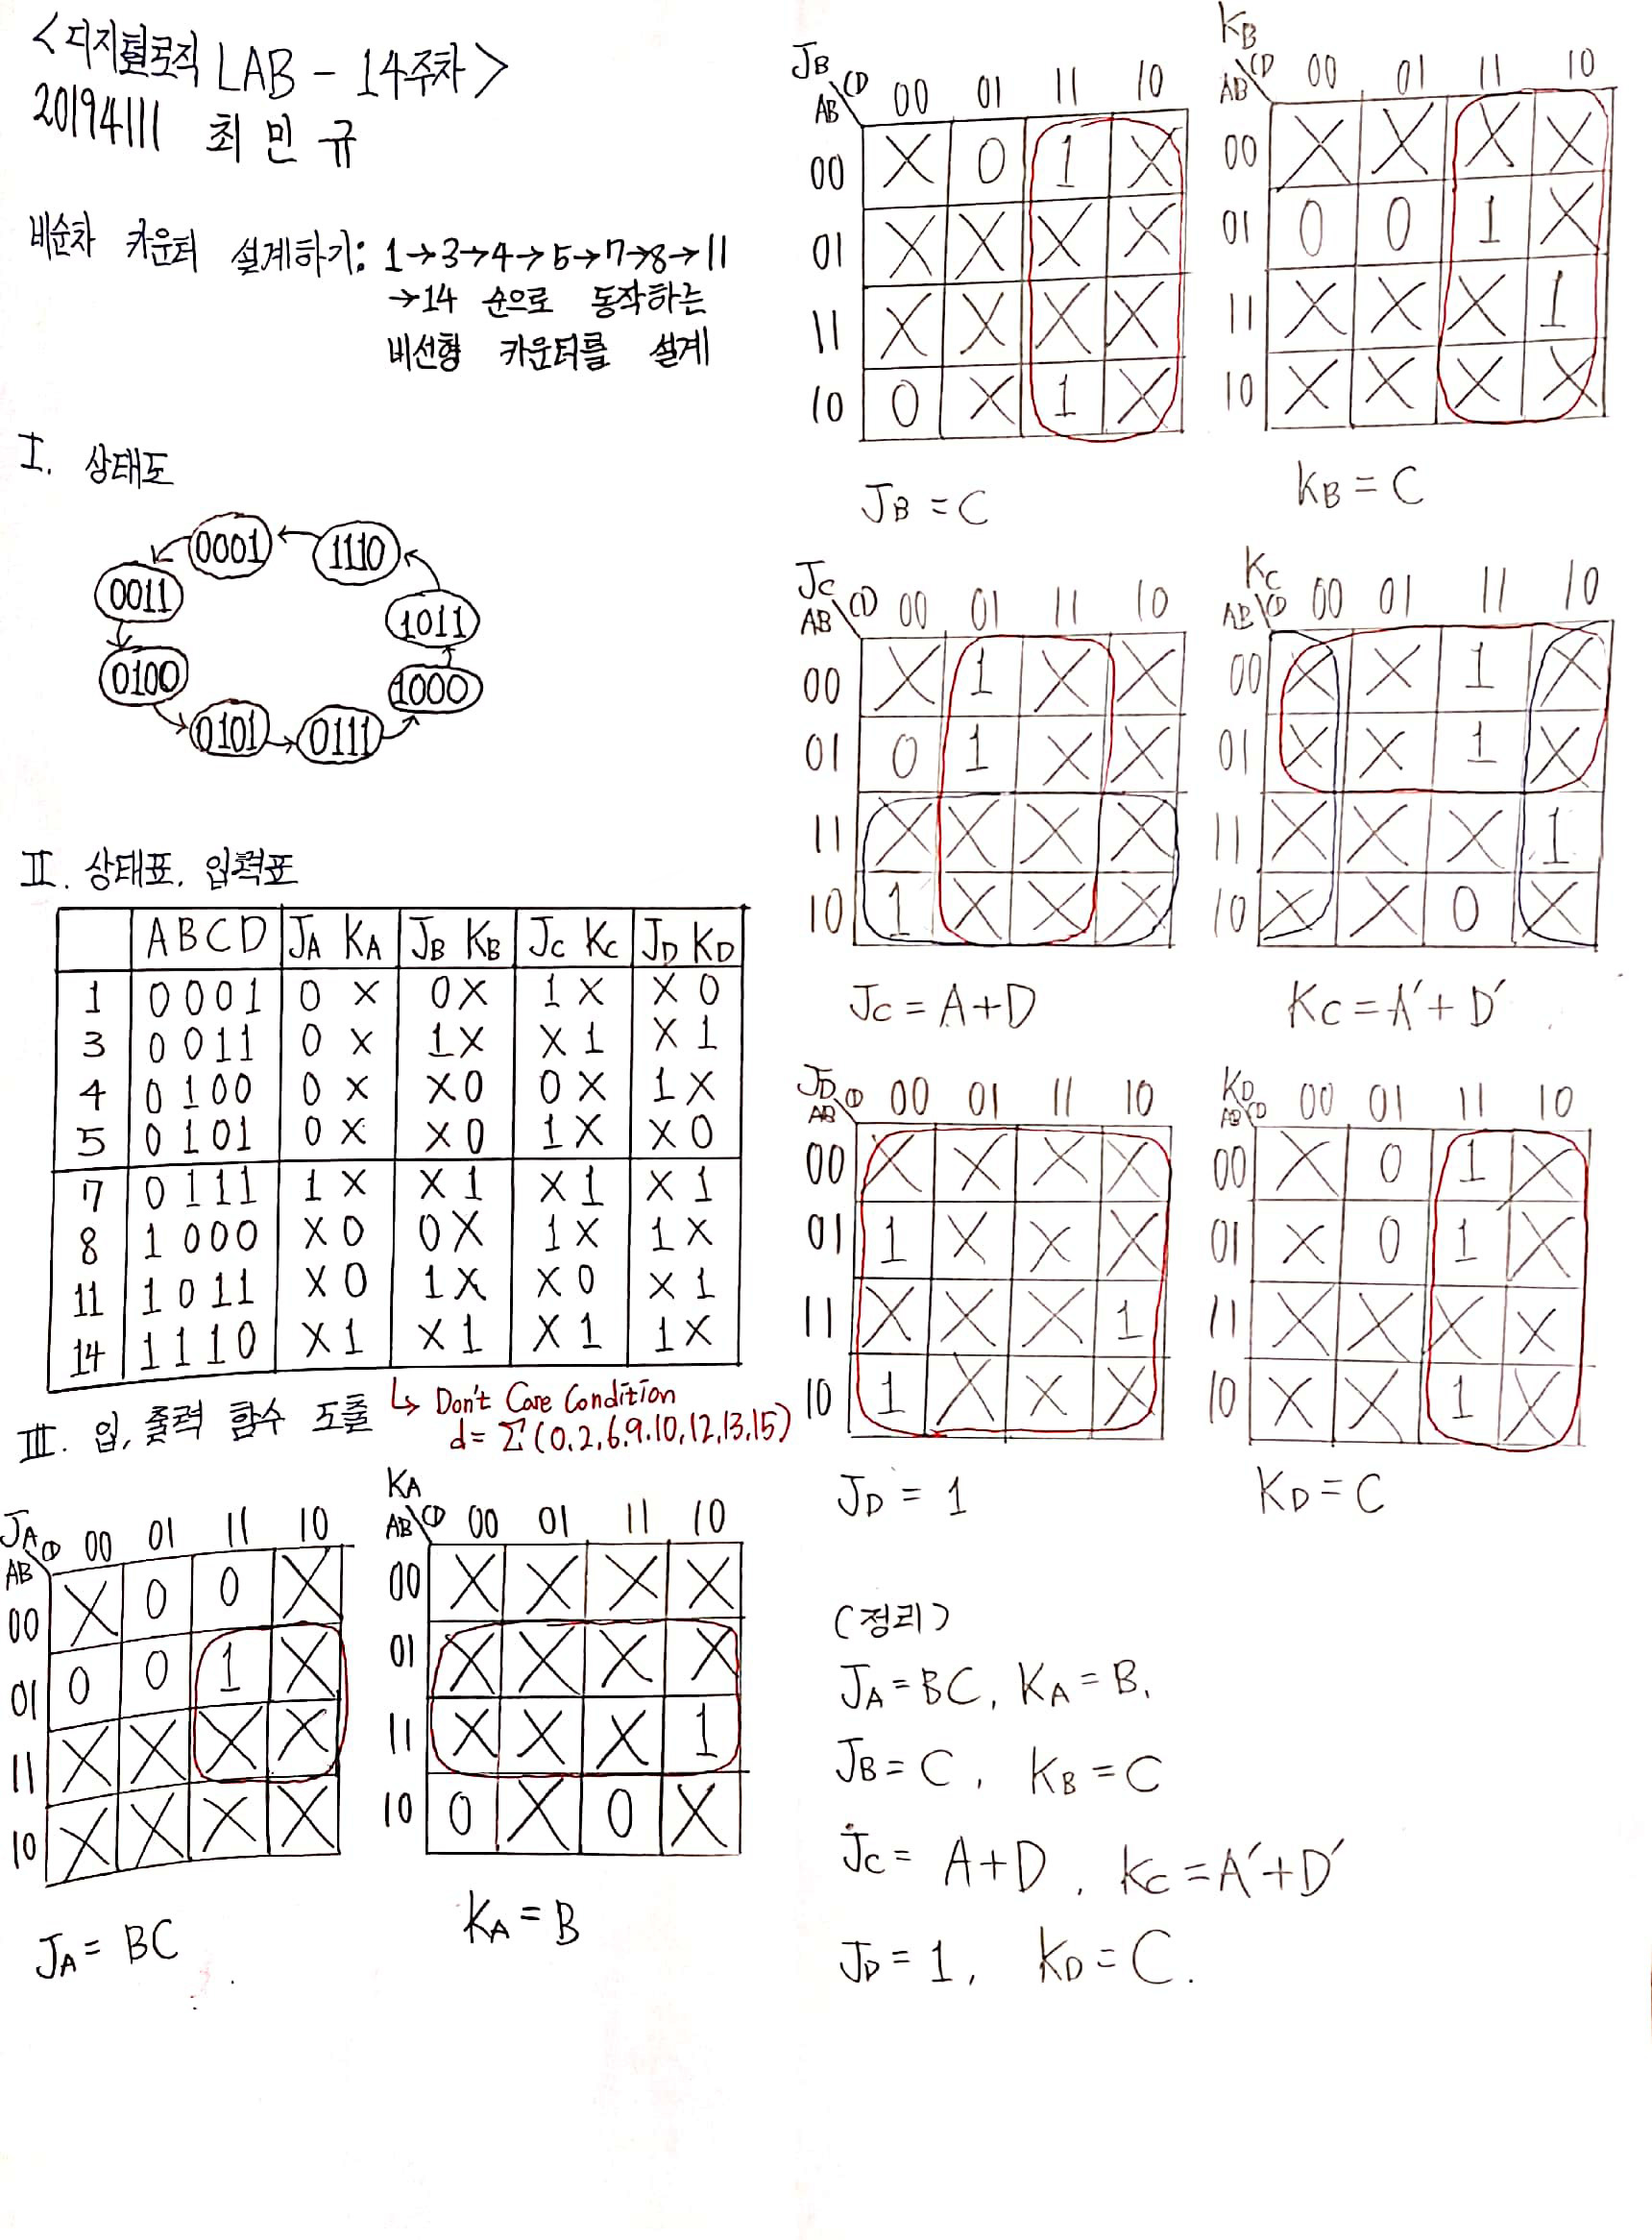 <디지털로직 LAB - 14주차>
20194111 최민규
비순차 카운터 설계하기: 1→3→4→5→7→8→11
→14 순으로 동작하는
비선형 카운터를 설계
I. 상태도
0001 1110
0011 1011
0100 1000
0101 0111
II. 상태표, 입력표
A B C D JA KA JB KB JC KC JD KD
1 0 0 0 1 0 X 0 X 1 X X 0
3 0 0 1 1 0 X 1 X X 1 X 1
4 0 1 0 0 0 X X 0 0 X 1 X
5 0 1 0 1 0 X X 0 1 X X 0
7 0 1 1 1 1 X X 1 X 1 X 1
8 1 0 0 0 X 0 0 X 1 X 1 X
11 1 0 1 1 X 0 1 X X 0 X 1
14 1 1 1 0 X 1 X 1 X 1 1 X
↳ Don't Care Condition
d = Σ(0,2,6,9,10,12,13,15)
III. 입, 출력 함수 도출
JA CD 00 01 11 10
AB
00 X 0 0 X
01 0 0 1 X
11 X X X X
10 X X X X
JA = BC
KA
AB CD 00 01 11 10
00 X X X X
01 X X X X
11 X X X 1
10 0 X 0 X
KA = B
JB CD 00 01 11 10
AB
00 X 0 1 X
01 X X X X
11 X X X X
10 0 X 1 X
JB = C
KB
AB CD 00 01 11 10
00 X X X X
01 0 0 1 X
11 X X X 1
10 X X X X
KB = C
JC CD 00 01 11 10
AB
00 X 1 X X
01 0 1 X X
11 X X X X
10 1 X X X
JC = A+D
KC
AB CD 00 01 11 10
00 X X 1 X
01 X X 1 X
11 X X X 1
10 X X 0 X
KC = A'+D'
JD CD 00 01 11 10
AB
00 X X X X
01 1 X X X
11 X X X 1
10 1 X X X
JD = 1
KD
AB CD 00 01 11 10
00 X 0 1 X
01 X 0 1 X
11 X X X X
10 X X 1 X
KD = C
(정리)
JA = BC, KA = B,
JB = C, KB = C
JC = A+D, KC = A'+D'
JD = 1, KD = C.